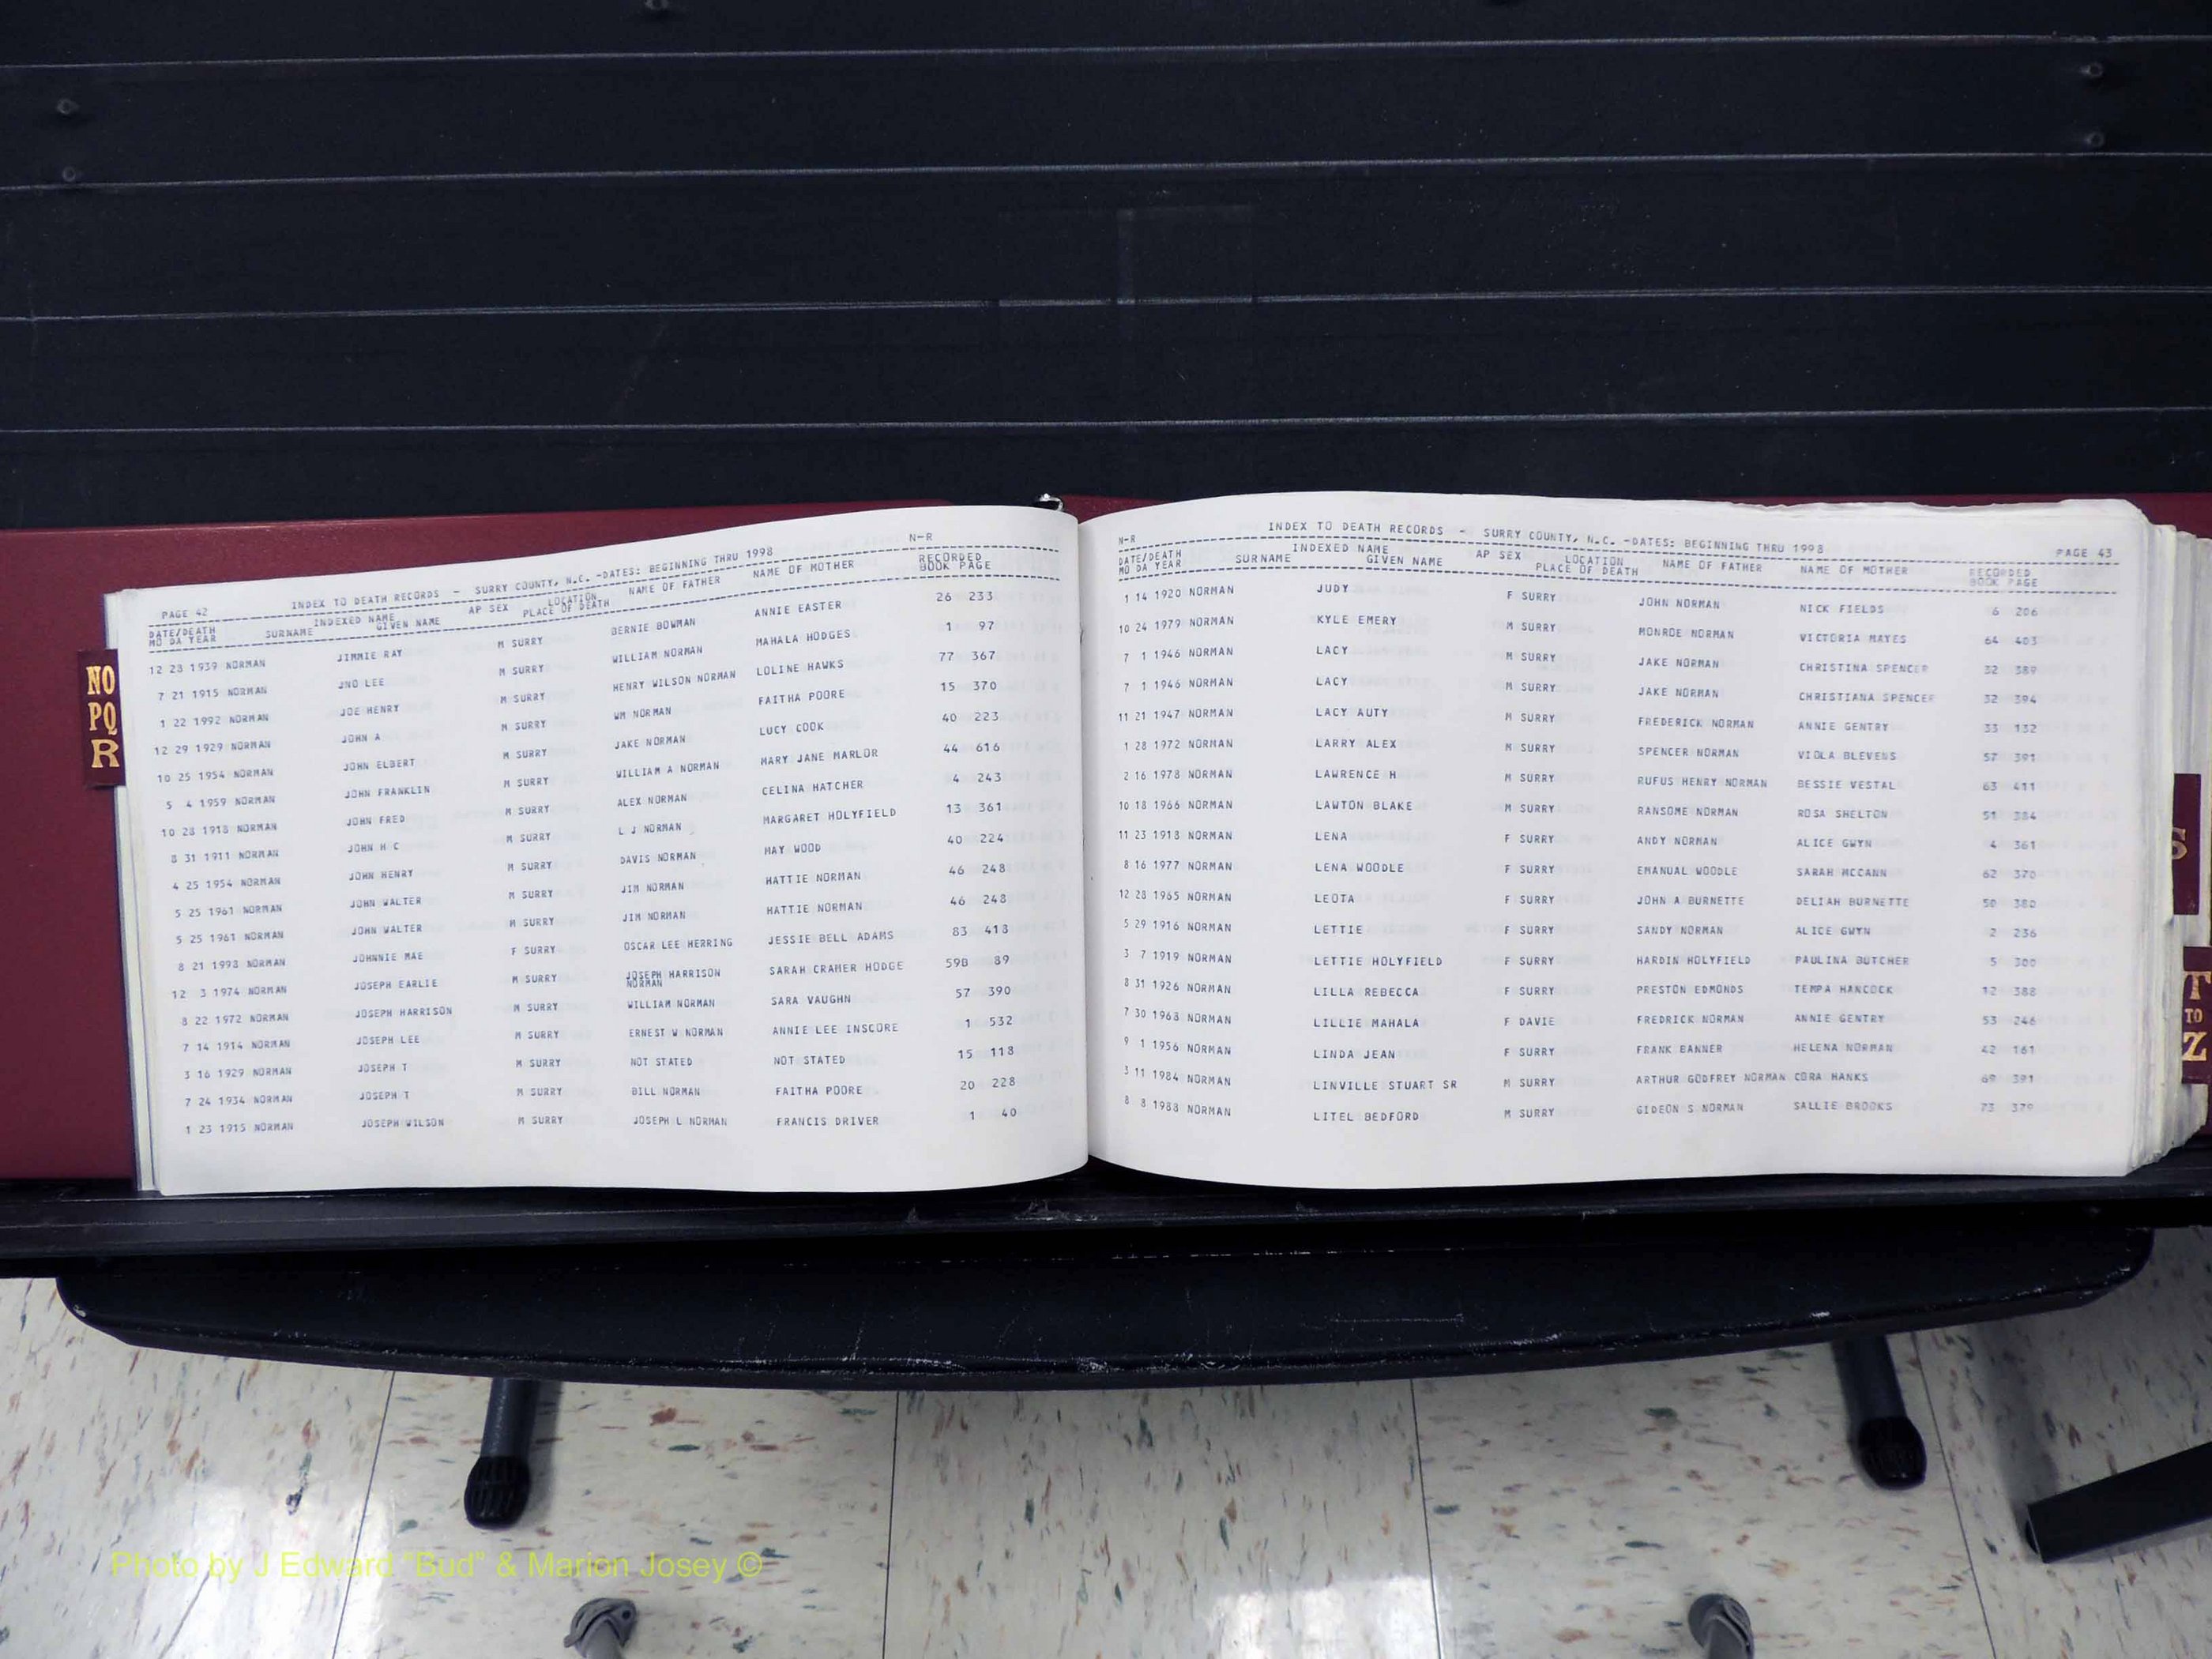 PAGE 42 INDEX TO DEATH RECORDS - SURRY COUNTY, N.C. -DATES: BEGINNING THRU 1998 N-R
DATE/DEATH INDEXED NAME AP SEX LOCATION NAME OF FATHER NAME OF MOTHER RECORDED
MO DA YEAR SURNAME GIVEN NAME PLACE OF DEATH BOOK PAGE
12 28 1939 NORMAN JIMMIE RAY M SURRY BERNIE BOWMAN ANNIE EASTER 26 233
7 21 1915 NORMAN JNO LEE M SURRY WILLIAM NORMAN MAHALA HODGES 1 97
1 22 1992 NORMAN JOE HENRY M SURRY HENRY WILSON NORMAN LOLINE HAWKS 77 367
12 29 1929 NORMAN JOHN A M SURRY WM NORMAN FAITHA POORE 15 370
10 25 1954 NORMAN JOHN ELBERT M SURRY JAKE NORMAN LUCY COOK 40 223
5 4 1959 NORMAN JOHN FRANKLIN M SURRY WILLIAM A NORMAN MARY JANE MARLOR 44 616
10 28 1918 NORMAN JOHN FRED M SURRY ALEX NORMAN CELINA HATCHER 4 243
8 31 1911 NORMAN JOHN H C M SURRY L J NORMAN MARGARET HOLYFIELD 13 361
4 25 1954 NORMAN JOHN HENRY M SURRY DAVIS NORMAN MAY WOOD 40 224
5 25 1961 NORMAN JOHN WALTER M SURRY JIM NORMAN HATTIE NORMAN 46 248
5 25 1961 NORMAN JOHN WALTER M SURRY JIM NORMAN HATTIE NORMAN 46 248
8 21 1998 NORMAN JOHNNIE MAE F SURRY OSCAR LEE HERRING JESSIE BELL ADAMS 83 418
12 3 1974 NORMAN JOSEPH EARLIE M SURRY JOSEPH HARRISON SARAH CRAMER HODGE 59B 89
NORMAN
8 22 1972 NORMAN JOSEPH HARRISON M SURRY WILLIAM NORMAN SARA VAUGHN 57 390
7 14 1914 NORMAN JOSEPH LEE M SURRY ERNEST W NORMAN ANNIE LEE INSCORE 1 532
3 16 1929 NORMAN JOSEPH T M SURRY NOT STATED NOT STATED 15 118
7 24 1934 NORMAN JOSEPH T M SURRY BILL NORMAN FAITHA POORE 20 228
1 23 1915 NORMAN JOSEPH WILSON M SURRY JOSEPH L NORMAN FRANCIS DRIVER 1 40
N-R INDEX TO DEATH RECORDS - SURRY COUNTY, N.C. -DATES: BEGINNING THRU 1998 PAGE 43
DATE/DEATH INDEXED NAME AP SEX LOCATION NAME OF FATHER NAME OF MOTHER RECORDED
MO DA YEAR SURNAME GIVEN NAME PLACE OF DEATH BOOK PAGE
1 14 1920 NORMAN JUDY F SURRY JOHN NORMAN NICK FIELDS 6 206
10 24 1979 NORMAN KYLE EMERY M SURRY MONROE NORMAN VICTORIA MAYES 64 403
7 1 1946 NORMAN LACY M SURRY JAKE NORMAN CHRISTINA SPENCER 32 389
7 1 1946 NORMAN LACY M SURRY JAKE NORMAN CHRISTIANA SPENCER 32 394
11 21 1947 NORMAN LACY AUTY M SURRY FREDERICK NORMAN ANNIE GENTRY 33 132
1 28 1972 NORMAN LARRY ALEX M SURRY SPENCER NORMAN VIOLA BLEVENS 57 391
2 16 1978 NORMAN LAWRENCE H M SURRY RUFUS HENRY NORMAN BESSIE VESTAL 63 411
10 18 1966 NORMAN LAWTON BLAKE M SURRY RANSOME NORMAN ROSA SHELTON 51 384
11 23 1918 NORMAN LENA F SURRY ANDY NORMAN ALICE GWYN 4 361
8 16 1977 NORMAN LENA WOODLE F SURRY EMANUAL WOODLE SARAH MCCANN 62 370
12 28 1965 NORMAN LEOTA F SURRY JOHN A BURNETTE DELIAH BURNETTE 50 380
5 29 1916 NORMAN LETTIE F SURRY SANDY NORMAN ALICE GWYN 2 236
3 7 1919 NORMAN LETTIE HOLYFIELD F SURRY HARDIN HOLYFIELD PAULINA BUTCHER 5 300
8 31 1926 NORMAN LILLA REBECCA F SURRY PRESTON EDMONDS TEMPA HANCOCK 12 388
7 30 1968 NORMAN LILLIE MAHALA F DAVIE FREDRICK NORMAN ANNIE GENTRY 53 246
9 1 1956 NORMAN LINDA JEAN F SURRY FRANK BANNER HELENA NORMAN 42 161
3 11 1984 NORMAN LINVILLE STUART SR M SURRY ARTHUR GODFREY NORMAN CORA HANKS 69 391
8 8 1988 NORMAN LITEL BEDFORD M SURRY GIDEON S NORMAN SALLIE BROOKS 73 379
NO
PQ
R
S
T
TO
Z
Photo by J Edward "Bud" & Marion Josey ©